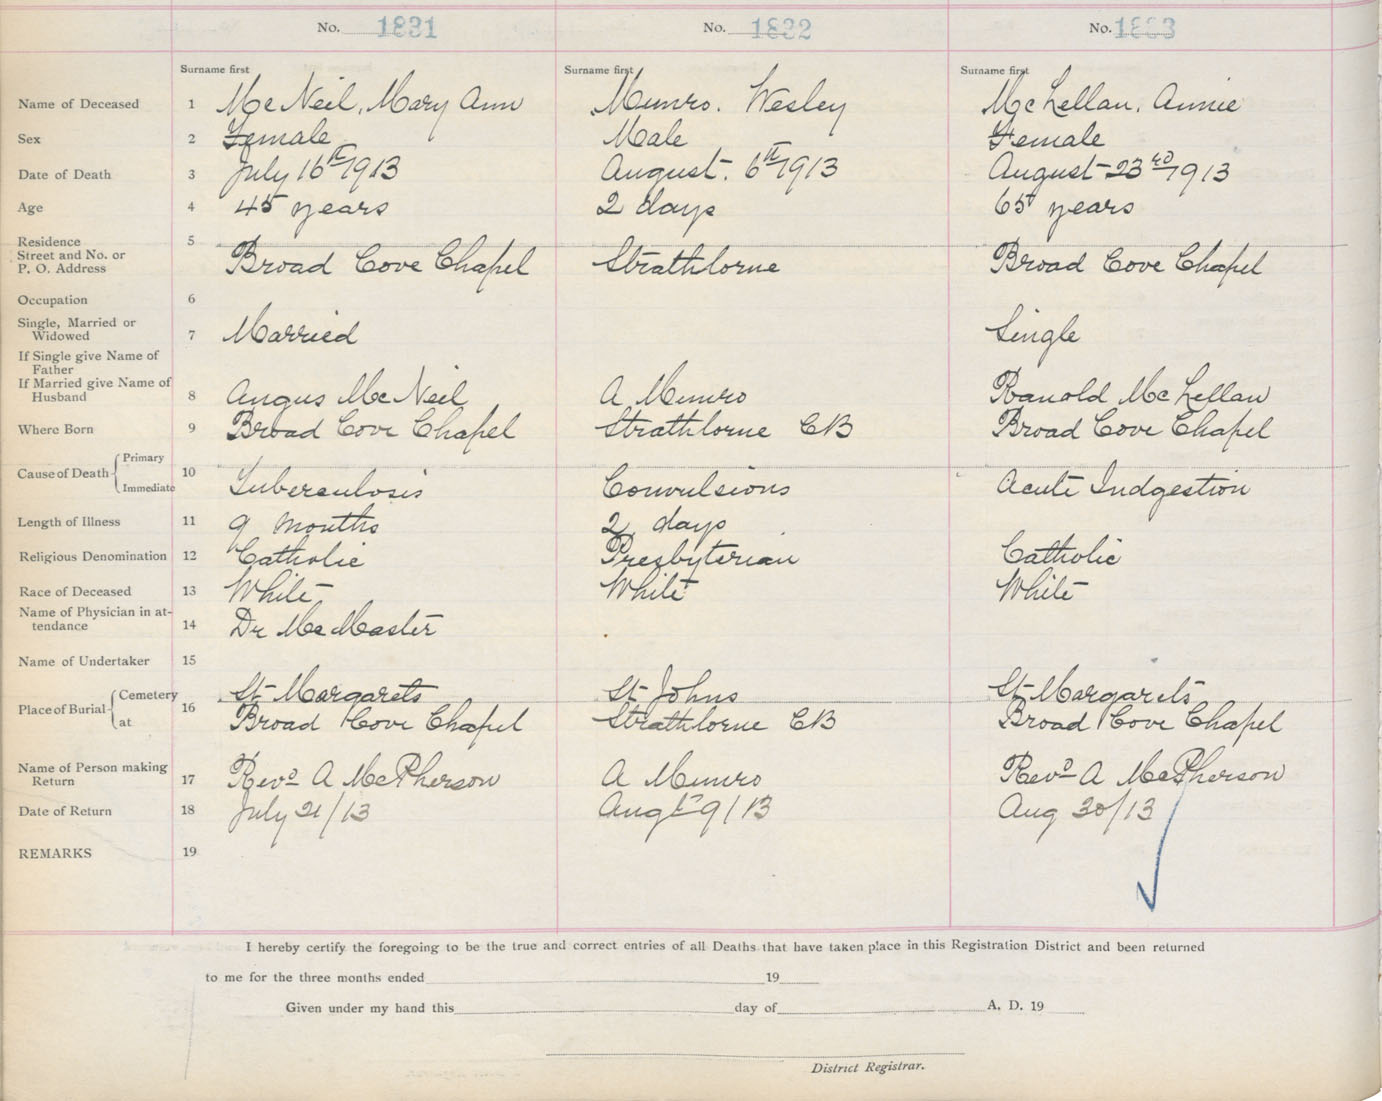 No. 1831 No. 1832 No. 1833
Surname first Surname first Surname first
Name of Deceased 1 McNeil, Mary Ann Munro. Wesley McLellan, Annie
Sex 2 Female Male Female
Date of Death 3 July 16th 1913 August. 6th 1913 August 23rd 1913
Age 4 45 years 2 days 65 years
Residence 5
Street and No. or
P. O. Address Broad Cove Chapel Strathlorne Broad Cove Chapel
Occupation 6
Single, Married or
Widowed 7 Married Single
If Single give Name of
Father
If Married give Name of
Husband 8 Angus McNeil A Munro Ranold McLellan
Where Born 9 Broad Cove Chapel Strathlorne CB Broad Cove Chapel
Cause of Death Primary
Immediate 10 Tuberculosis Convulsions Acute Indgestion
Length of Illness 11 9 months 2 days
Religious Denomination 12 Catholic Presbyterian Catholic
Race of Deceased 13 White White White
Name of Physician in at-
tendance 14 Dr McMaster
Name of Undertaker 15
Place of Burial Cemetery 16 St Margarets St Johns St Margarets
at Broad Cove Chapel Strathlorne CB Broad Cove Chapel
Name of Person making
Return 17 Revd A McPherson A Munro Revd A McPherson
Date of Return 18 July 21/13 Augt 9/13 Aug 30/13
REMARKS 19
I hereby certify the foregoing to be the true and correct entries of all Deaths that have taken place in this Registration District and been returned
to me for the three months ended 19
Given under my hand this day of A. D. 19
District Registrar.